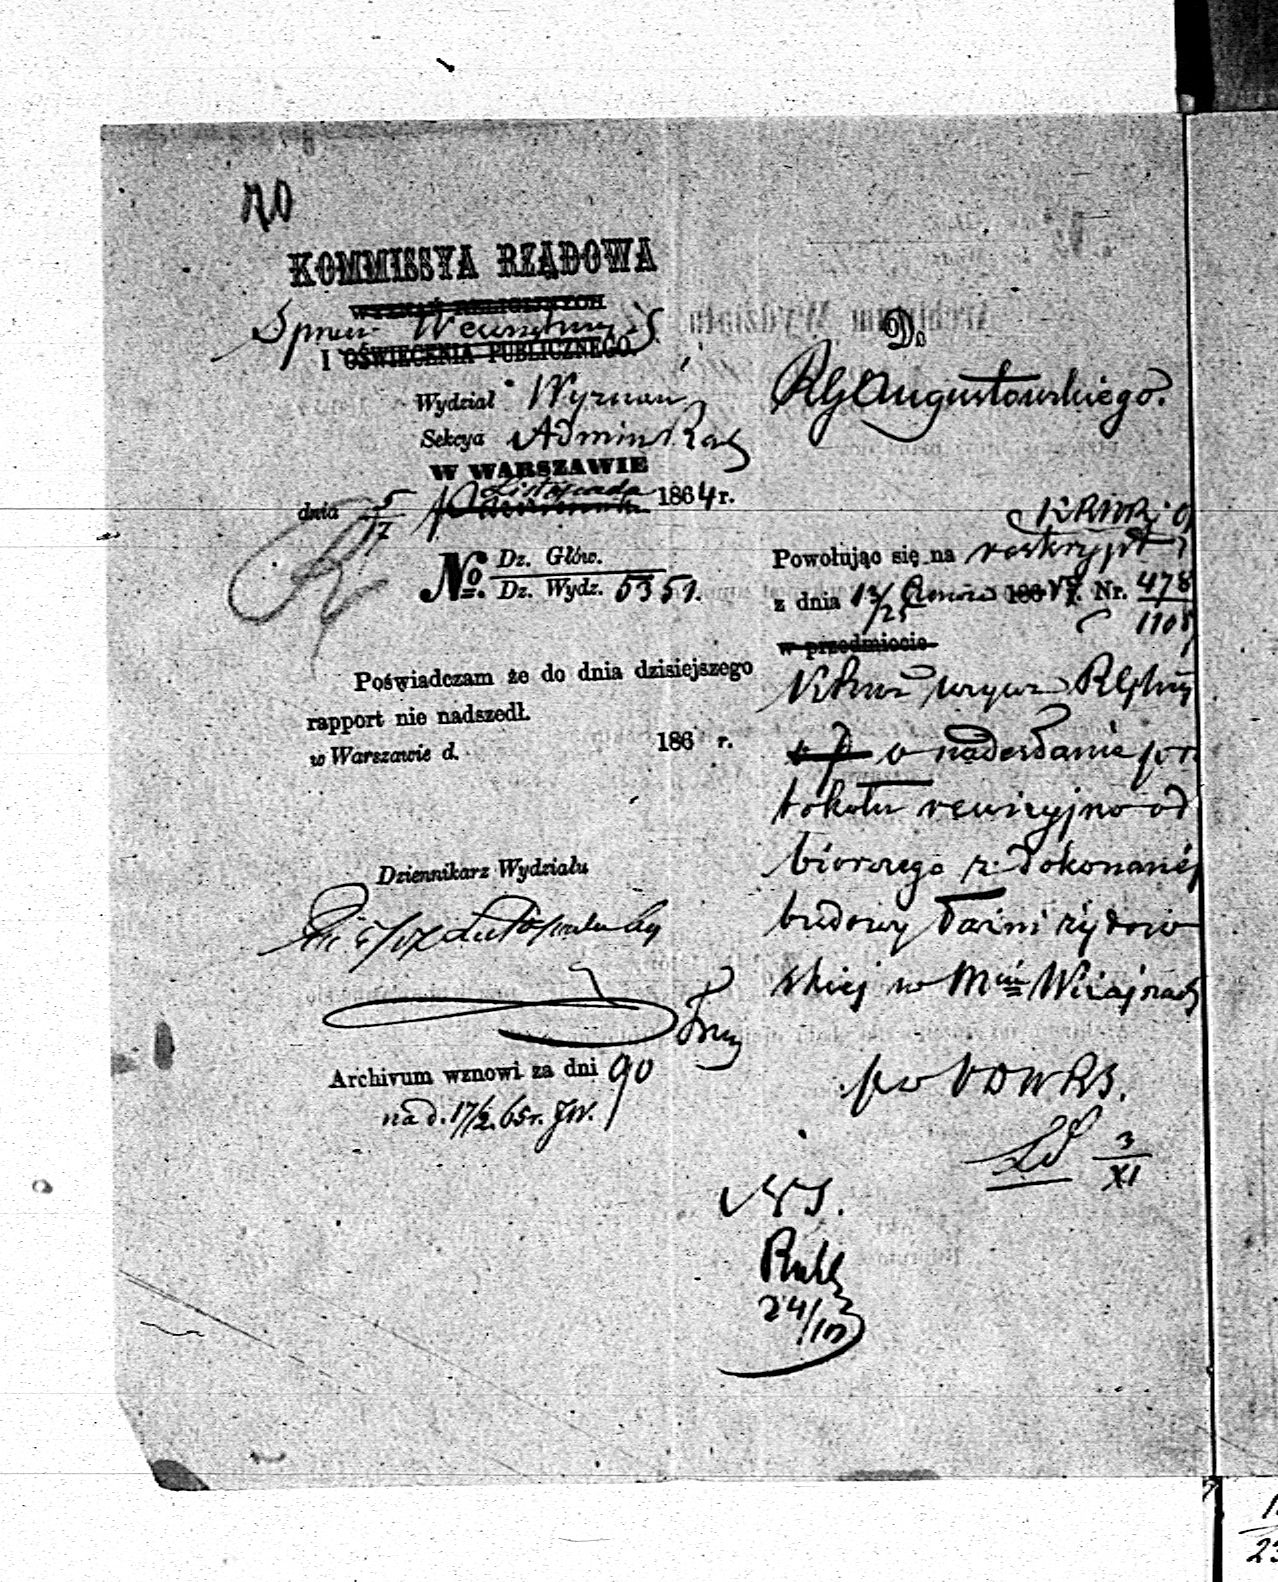 70
KOMMISSYA RZĄDOWA
WYZNAŃ RELIGIJNYCH
Spraw Wewnętrznych
I OŚWIECENIA PUBLICZNEGO.
Wydział Wyznań
Sekcya Administ.
W WARSZAWIE
dnia 5/17 Listopada 1864 r.
No. Dz. Głów.
Dz. Wydz. 5351.
Poświadczam że do dnia dzisiejszego
rapport nie nadszedł.
w Warszawie d. 186 r.
Dziennikarz Wydziału
Archivum wznowi za dni 90
na d. 17/2 65 r.
Do
RG Augustowskiego.
KRWR i O
Powołując się na reskrypt
z dnia 13/25 Czerwca 186 Nr. 478
1105
w przedmiocie
wzywa
o nadesłanie pro
tokołu rewizyjno od
biorczego z dokonanej
budowy łaźni żydow
skiej w Mie Wiżajnach
po
3/XI
24/10